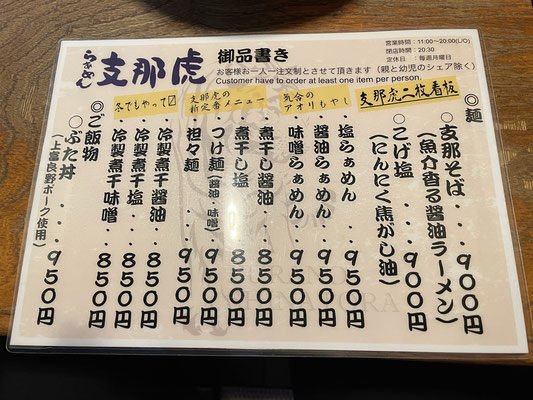 らぁめん 支那虎 御品書き
営業時間：11:00～20:00(L/O)
閉店時間：20:30
定休日：毎週月曜日
お客様お一人一注文制とさせて頂きます（親と幼児のシェア除く）
Customer have to order at least one item per person.
支那虎二枚看板
◎麺
○支那そば...900円
（魚介香る醤油ラーメン）
○こげ塩...900円
（にんにく焦がし油）
気合の
アオリもやし
塩らぁめん...950円
醤油らぁめん...950円
味噌らぁめん...950円
支那虎の
新定番メニュー
煮干し醤油...850円
煮干し塩...850円
つけ麺（醤油・味噌）950円
担々麺...950円
冬でもやって☑
冷製煮干醤油...850円
冷製煮干塩...850円
冷製煮干味噌...850円
◎ご飯物
○ぶた丼...950円
（上富良野ポーク使用）